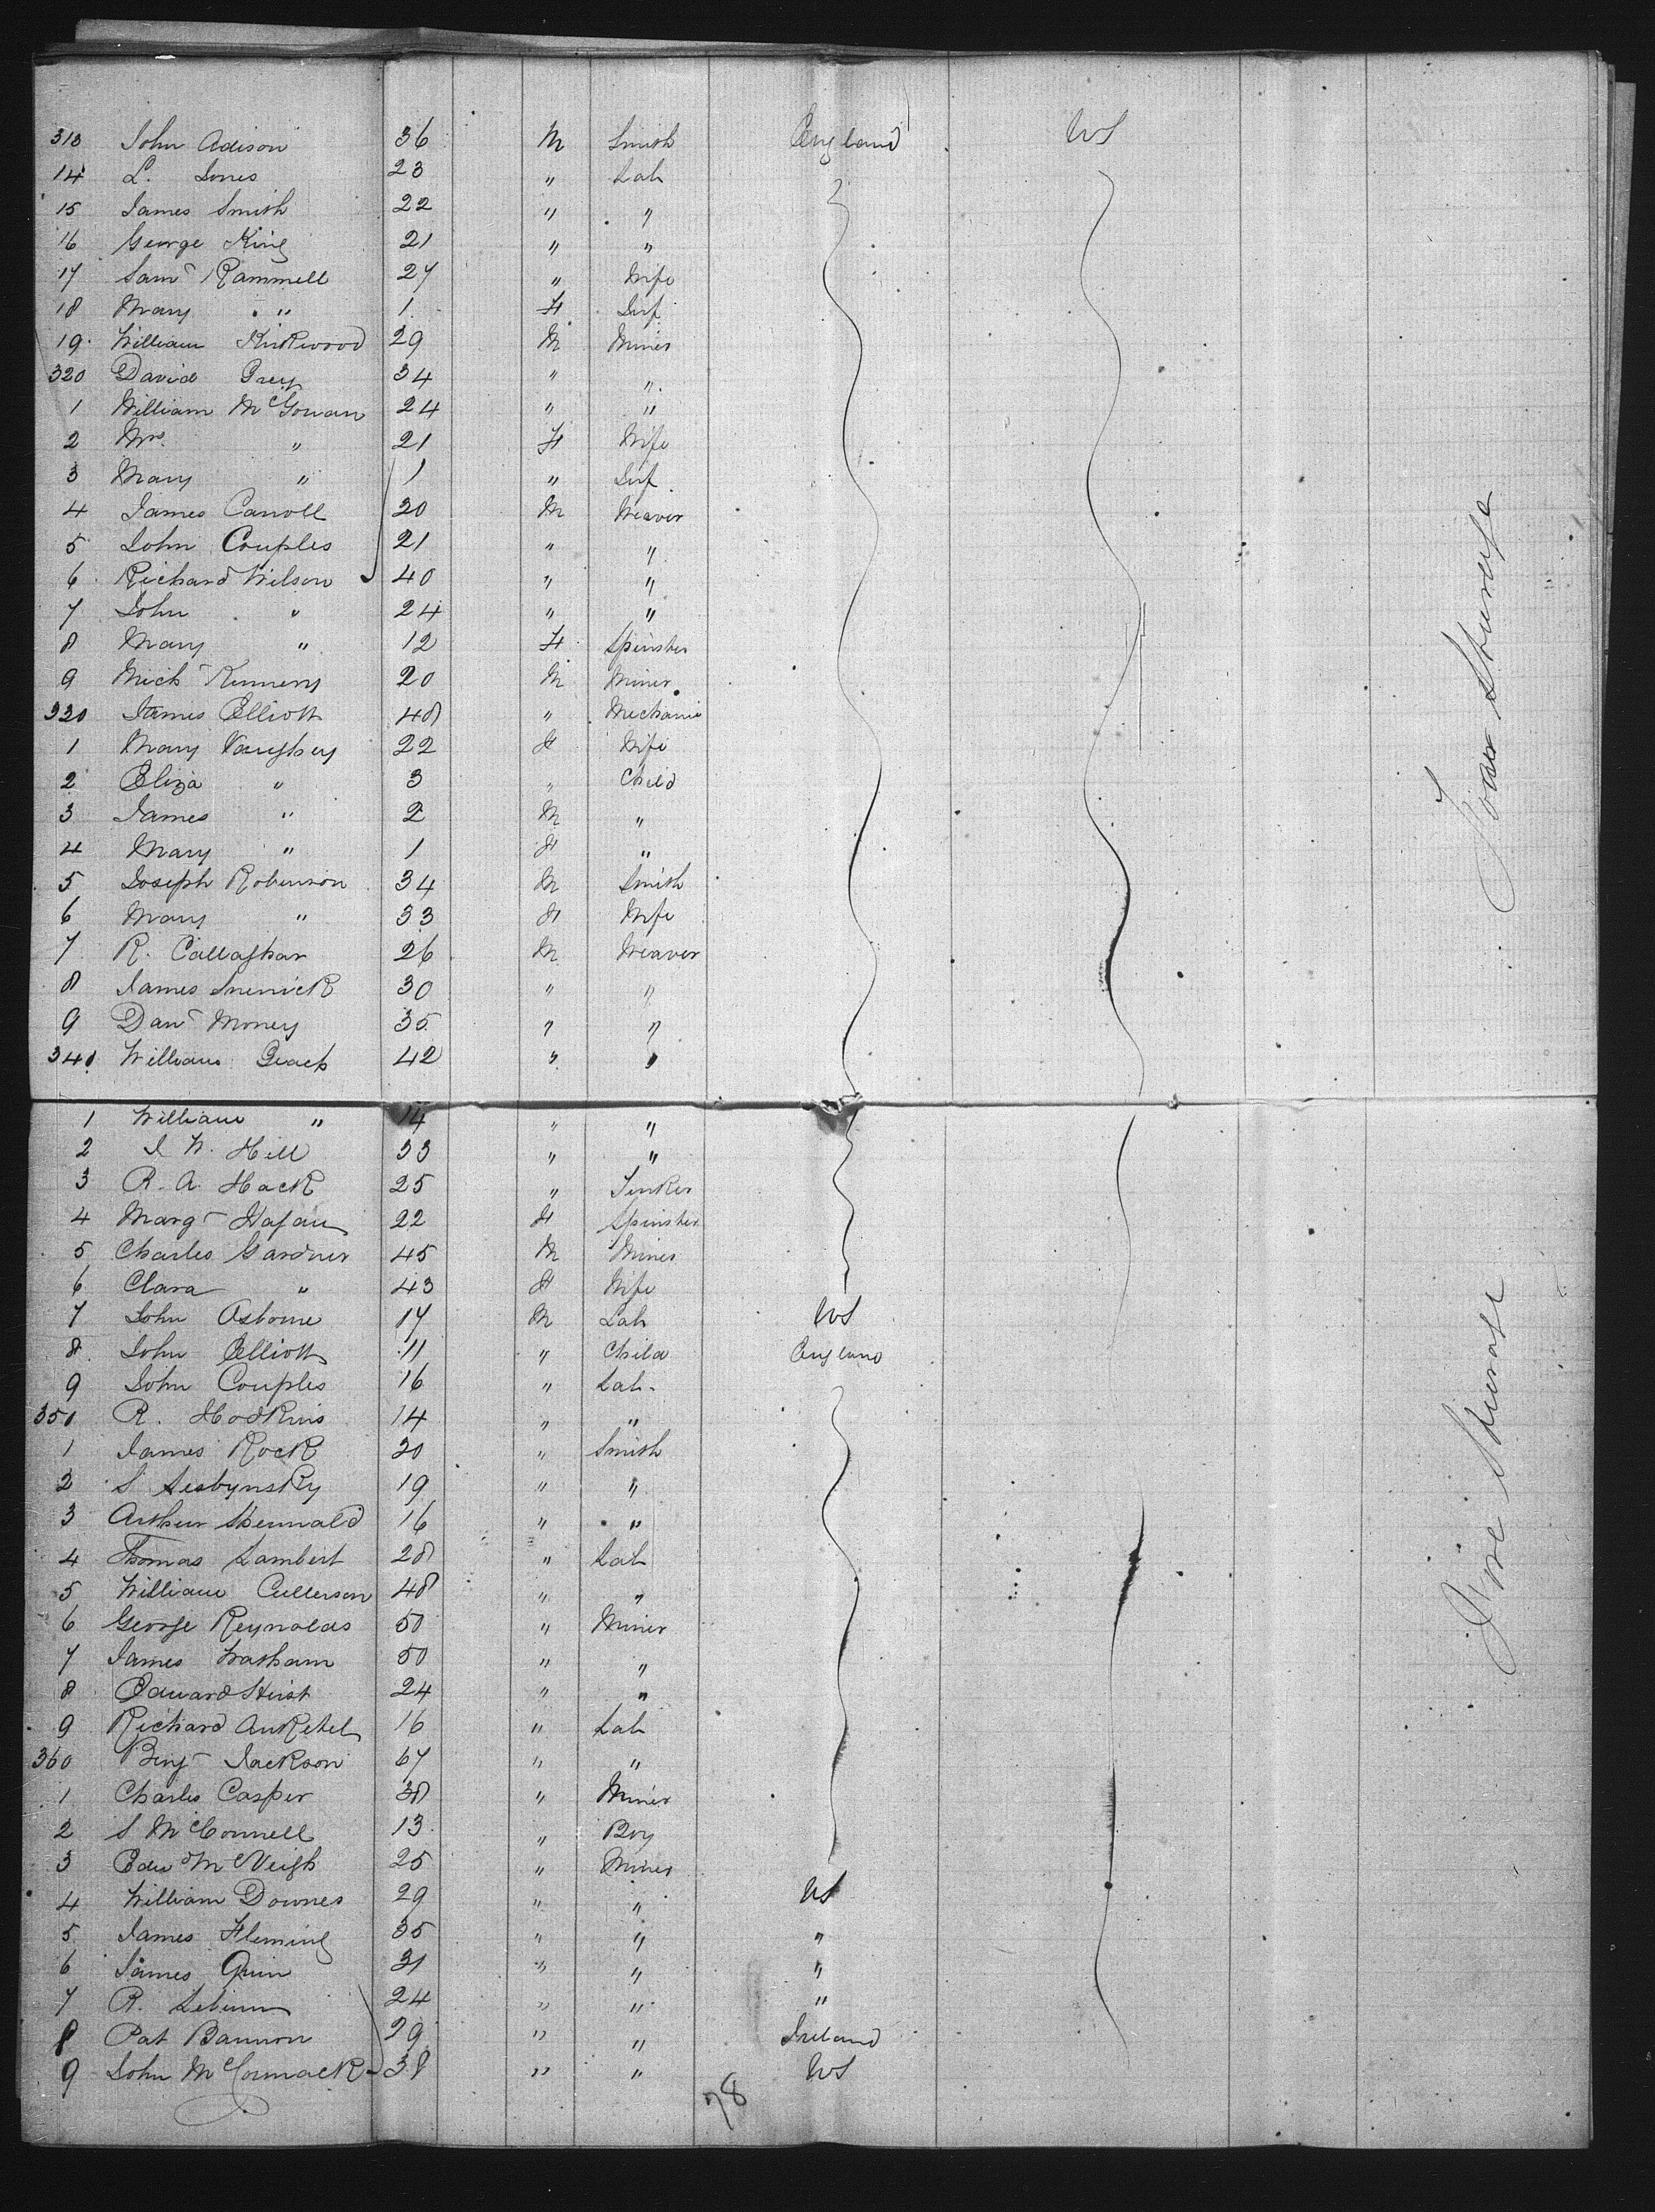 313 John Adison 36 M Smith England US
14 L. Jones 23 " Lab
15 James Smith 22 " "
16 George King 21 " "
17 Saml Rammell 27 " Wife
18 Mary " 1 F Inf
19 William Kirkwood 29 M Miner
320 David Grey 34 " "
1 William McGowan 24 " "
2 Mrs " 21 F Wife
3 Mary " 1 " Inf
4 James Carroll 20 M Weaver
5 John Couples 21 " "
6 Richard Wilson 40 " "
7 John " 24 " "
8 Mary " 12 F Spinster
9 Mich 20 M Miner
330 James Elliott 48 " Mechanic
1 Mary Vaughey 22 F Wife
2 Eliza " 3 " Child
3 James " 2 M "
4 Mary " 1 F "
5 Joseph Robinson 34 M Smith
6 Mary " 33 F Wife
7 R. Callaghan 26 M Weaver
8 James 30 " "
9 Danl Money 35 " "
340 William Beach 42 " "
Lower Steerage
1 William " 14 " "
2 J W. Hill 33 " "
3 R. A. Hack 25 " Tinker
4 Margt Hagan 22 F Spinster
5 Charles Gardner 45 M Miner
6 Clara " 43 F Wife
7 John Osborne 17 M Lab US
8 John Elliott 11 " Child England
9 John Couples 16 " Lab
350 R. Hodkins 14 " "
1 James Rock 20 " Smith
2 S 19 " "
3 Arthur 16 " "
4 Thomas Lambert 28 " Lab
5 William Cullerson 48 " "
6 George Reynolds 50 " Miner
7 James 50 " "
8 Edward Hirst 24 " "
9 Richard Anketel 16 " Lab
360 Benj Jackson 67 " "
1 Charles Casper 38 " Miner
2 S McConnell 13 " Boy
3 Edwd McVeigh 25 " Miner
4 William Downes 29 " " US
5 James Fleming 35 " " "
6 James Quin 31 " " "
7 R. 24 " " "
8 Pat Bannon 29 " " Ireland
9 John McCormack 38 " " US
Steerage
78